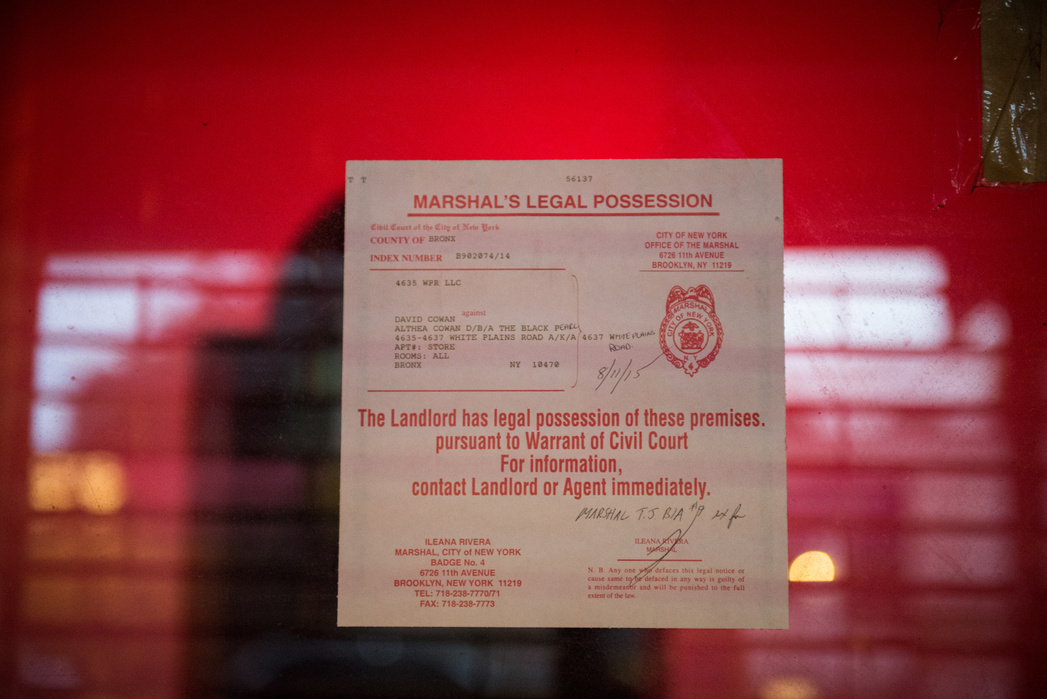 T T
56137
MARSHAL'S LEGAL POSSESSION
Civil Court of the City of New York
COUNTY OF BRONX
INDEX NUMBER B902074/14
CITY OF NEW YORK
OFFICE OF THE MARSHAL
6726 11th AVENUE
BROOKLYN, NY 11219
4635 WPR LLC
against
DAVID COWAN
ALTHEA COWAN D/B/A THE BLACK PEARL
4635-4637 WHITE PLAINS ROAD A/K/A 4637 WHITE PLAINS
ROAD
APT#: STORE
ROOMS: ALL
BRONX NY 10470
MARSHAL
CITY OF NEW YORK
N.Y.
4
8/11/15
The Landlord has legal possession of these premises.
pursuant to Warrant of Civil Court
For information,
contact Landlord or Agent immediately.
MARSHAL T.J. BIA #9
ILEANA RIVERA
MARSHAL, CITY of NEW YORK
BADGE No. 4
6726 11th AVENUE
BROOKLYN, NEW YORK 11219
TEL: 718-238-7770/71
FAX: 718-238-7773
ILEANA RIVERA
MARSHAL
N. B. Any one who defaces this legal notice or
cause same to be defaced in any way is guilty of
a misdemeanor and will be punished to the full
extent of the law.